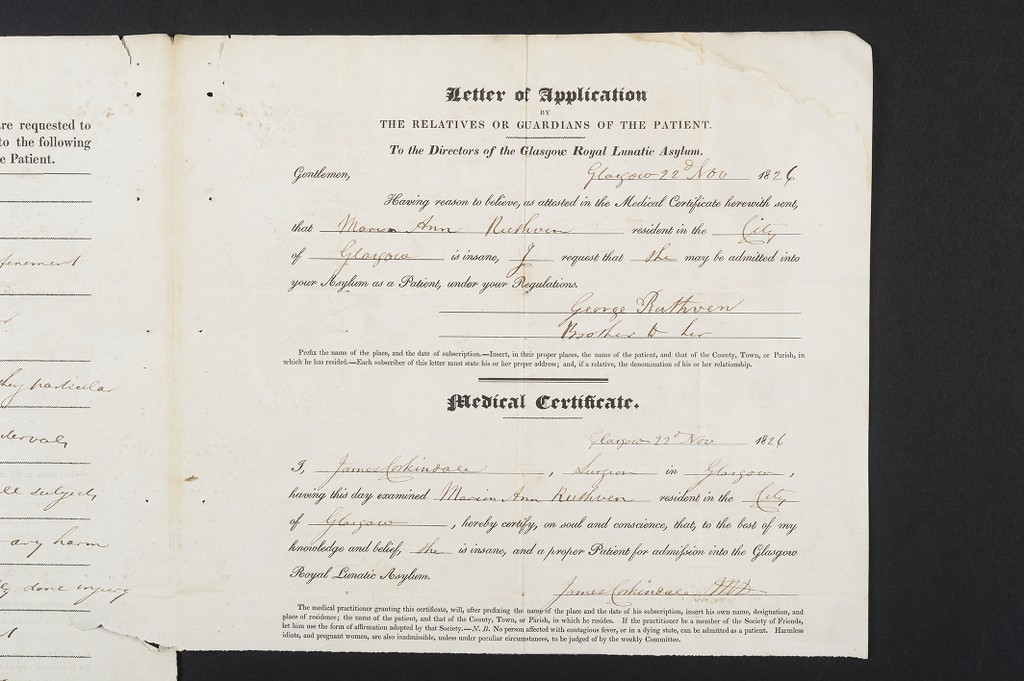 re requested to
to the following
e Patient.
finement
they particular
intervals
all subjects
any harm
done injury
Letter of Application
BY
THE RELATIVES OR GUARDIANS OF THE PATIENT.
To the Directors of the Glasgow Royal Lunatic Asylum.
Gentlemen, Glasgow 22d Nov 1826
Having reason to believe, as attested in the Medical Certificate herewith sent,
that Marion Ann Ruthven resident in the City
of Glasgow is insane, I request that she may be admitted into
your Asylum as a Patient, under your Regulations.
George Ruthven
Brother to her
Prefix the name of the place, and the date of subscription.—Insert, in their proper places, the name of the patient, and that of the County, Town, or Parish, in
which he has resided.—Each subscriber of this letter must state his or her proper address; and, if a relative, the denomination of his or her relationship.
Medical Certificate.
Glasgow 22d Nov 1826
I, James Corkindale, Surgeon in Glasgow,
having this day examined Marion Ann Ruthven resident in the City
of Glasgow, hereby certify, on soul and conscience, that, to the best of my
knowledge and belief, she is insane, and a proper Patient for admission into the Glasgow
Royal Lunatic Asylum.
James Corkindale MD
The medical practitioner granting this certificate, will, after prefixing the name of the place and the date of his subscription, insert his own name, designation, and
place of residence; the name of the patient, and that of the County, Town, or Parish, in which he resides. If the practitioner be a member of the Society of Friends,
let him use the form of affirmation adopted by that Society.—N. B. No person affected with contagious fever, or in a dying state, can be admitted as a patient. Harmless
idiots, and pregnant women, are also inadmissible, unless under peculiar circumstances, to be judged of by the weekly Committee.